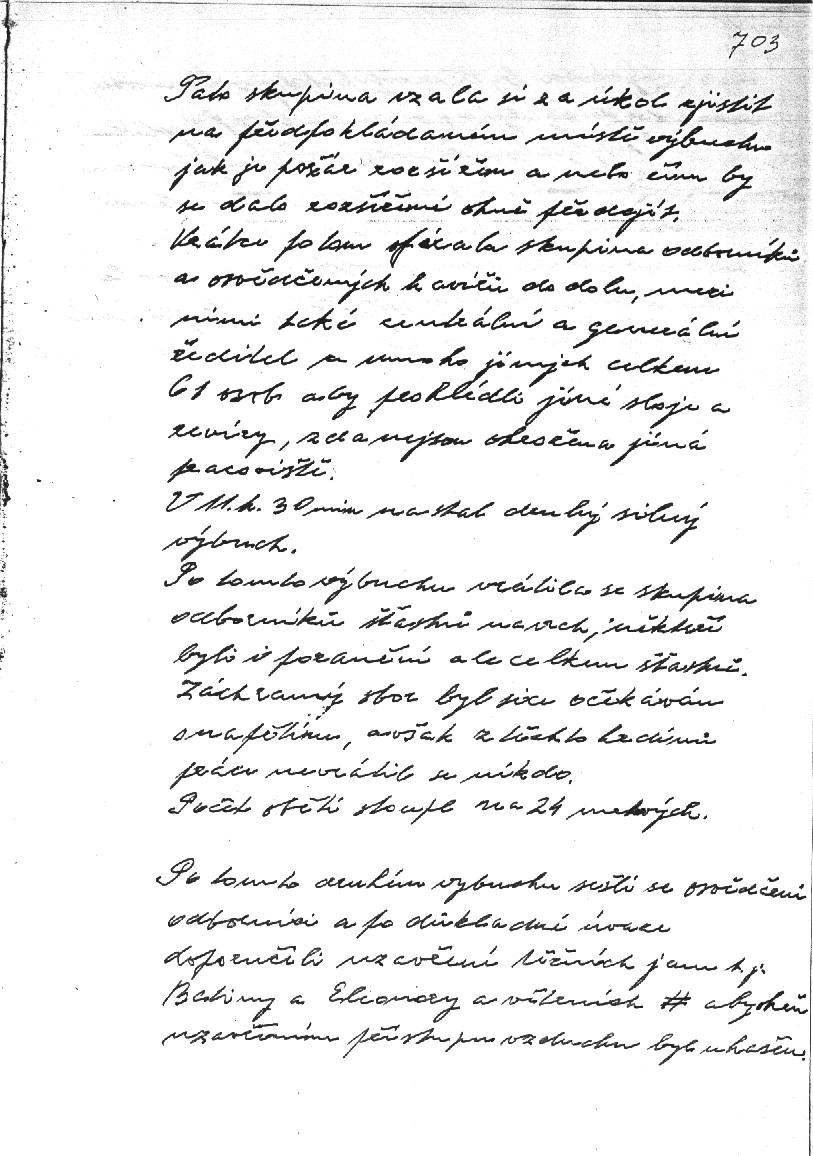 703
Tato skupina vzala si za úkol zjistit
na předpokládaném místě výbuchu
jak je požár rozšířen a nebo čím by
se dalo rozšíření ohně předejít.
Krátce potom sfárala skupina odborníků
a osvědčených havířů do dolu, mezi
nimi také centrální a generální
ředitel a mnoho jiných celkem
61 osob aby prohlédli jiné sloje a
revíry, zda nejsou ohrožena jiná
pracoviště.
V 11.h. 30 min nastal druhý silný
výbuch.
Po tomto výbuchu vrátila se skupina
odborníků šťastně navrch, někteří
byli i poranění ale celkem šťastně.
Záchranný sbor byl sice očekáván
s napětím, avšak z těchto hrdinů
práce nevrátil se nikdo.
Počet obětí stoupl na 24 mrtvých.
Po tomto druhém výbuchu sešli se osvědčení
odborníci a po důkladné úvaze
doporučili uzavření těžních jam t.j.
Betiny a Eleonory a větrních # aby oheň
uzavřením přístupu vzduchu byl uhašen.